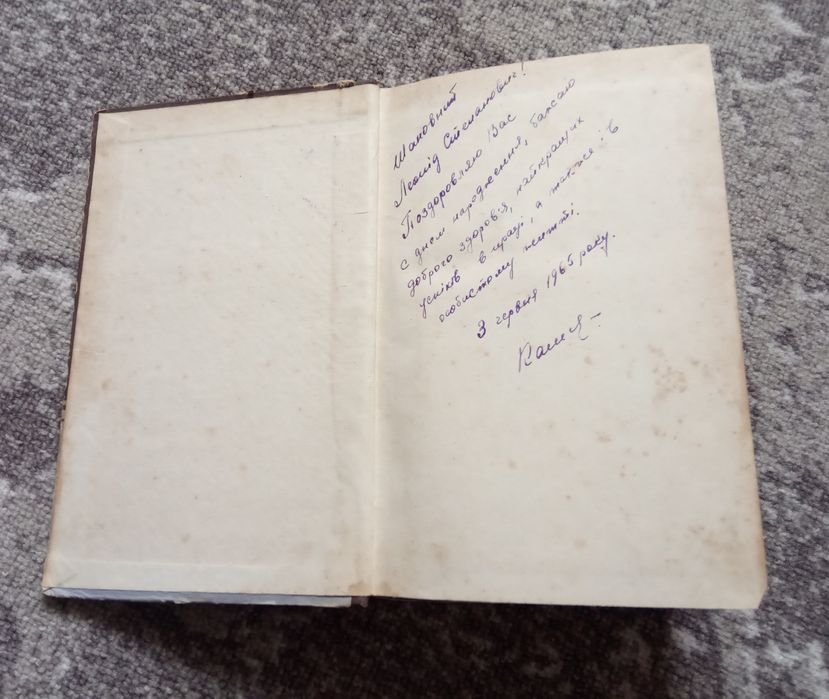 Шановний
Леонід Степанович!
Поздоровляю Вас
с днем народження, бажаю
доброго здоров'я, найкращих
успіхів в праці, а також в
особистому житті.
3 червня 1965 року.